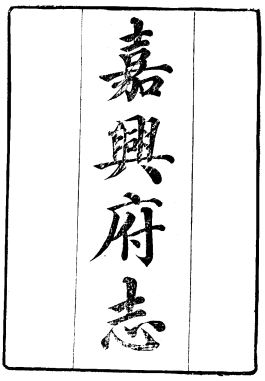 嘉興府志